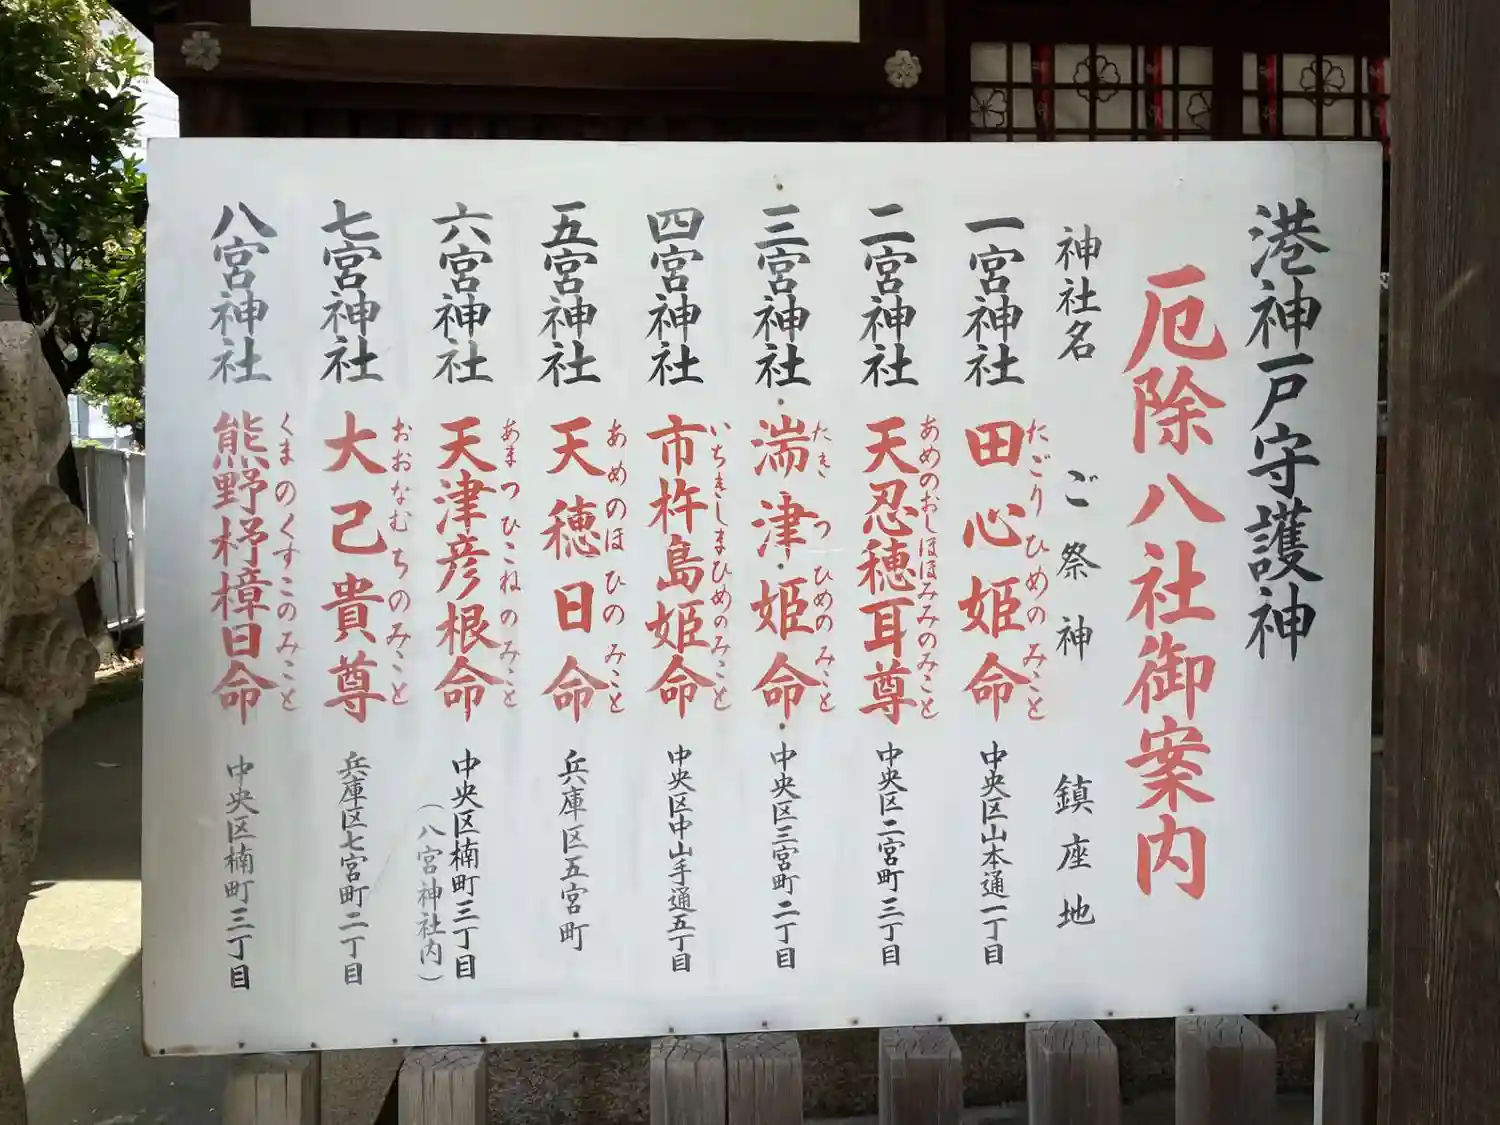 港神戸守護神
厄除八社御案内
神社名 ご祭神 鎮座地
一宮神社 田心姫命 中央区山本通一丁目
たごりひめのみこと
二宮神社 天忍穂耳尊 中央区二宮町三丁目
あめのおしほほみみのみこと
三宮神社 湍津姫命 中央区三宮町二丁目
たきつひめのみこと
四宮神社 市杵島姫命 中央区中山手通五丁目
いちきしまひめのみこと
五宮神社 天穂日命 兵庫区五宮町
あめのほひのみこと
六宮神社 天津彦根命 中央区楠町三丁目
あまつひこねのみこと
(八宮神社内)
七宮神社 大己貴尊 兵庫区七宮町二丁目
おおなむちのみこと
八宮神社 熊野杼樟日命 中央区楠町三丁目
くまのくすこのみこと